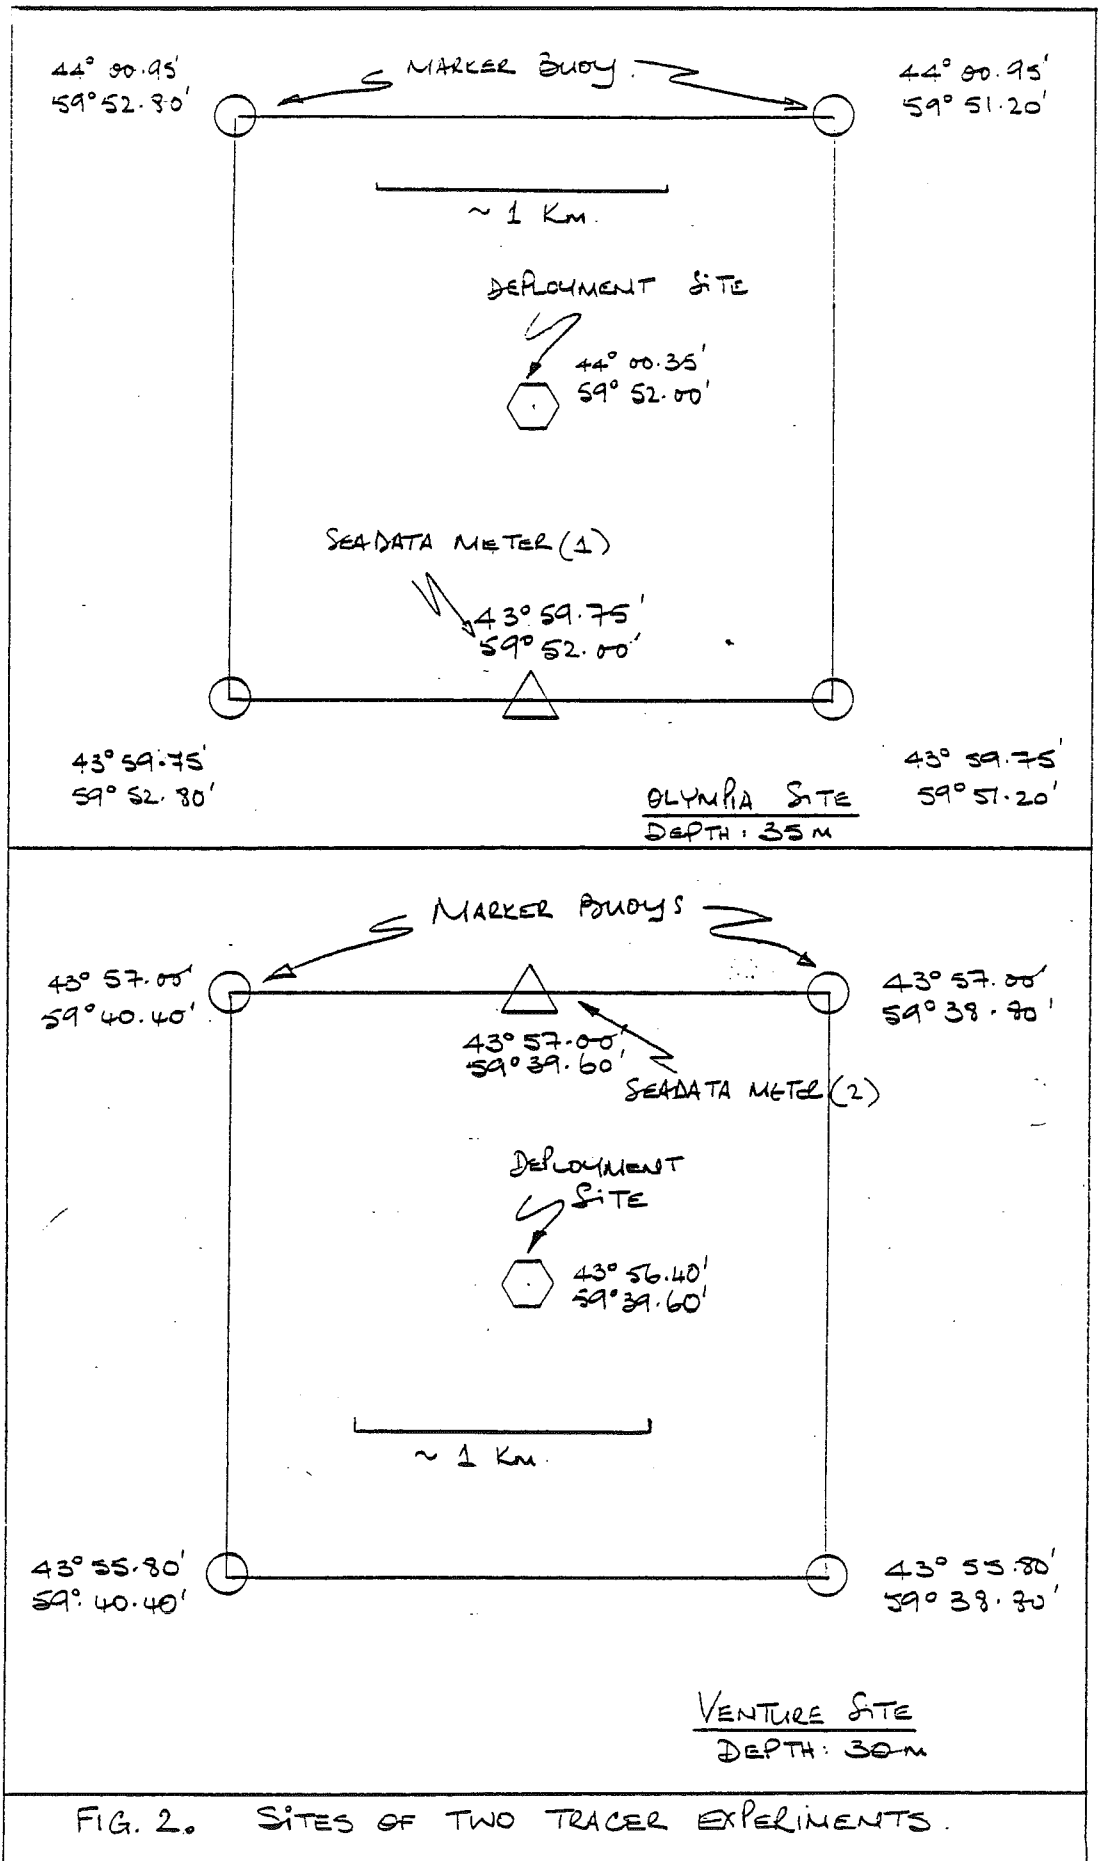 44° 00.95'
59° 52.80'
MARKER BUOY.
44° 00.95'
59° 51.20'
~ 1 Km.
DEPLOYMENT SITE
44° 00.35'
59° 52.00'
SEADATA METER (1)
43° 59.75'
59° 52.00'
43° 59.75'
59° 52.80'
43° 59.75'
59° 51.20'
OLYMPIA SITE
DEPTH: 35 M
MARKER BUOYS
43° 57.00'
59° 40.40'
43° 57.00'
59° 38.80'
43° 57.00'
59° 39.60'
SEADATA METER (2)
DEPLOYMENT
SITE
43° 56.40'
59° 39.60'
~ 1 Km.
43° 55.80'
59° 40.40'
43° 55.80'
59° 38.80'
VENTURE SITE
DEPTH: 30 M
FIG. 2. SITES OF TWO TRACER EXPERIMENTS.